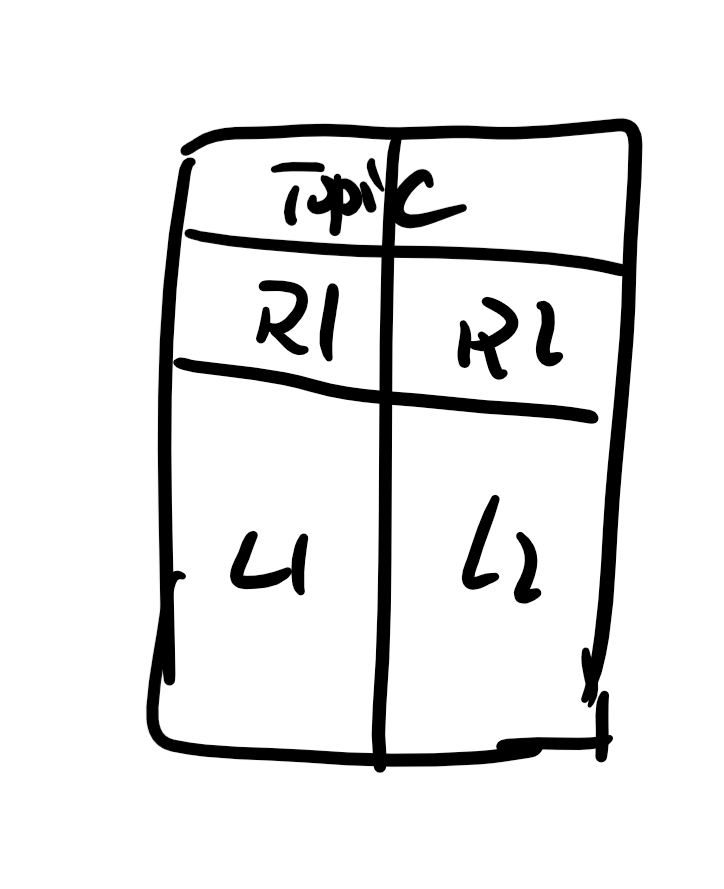 Topic
R1 R2
L1 L2